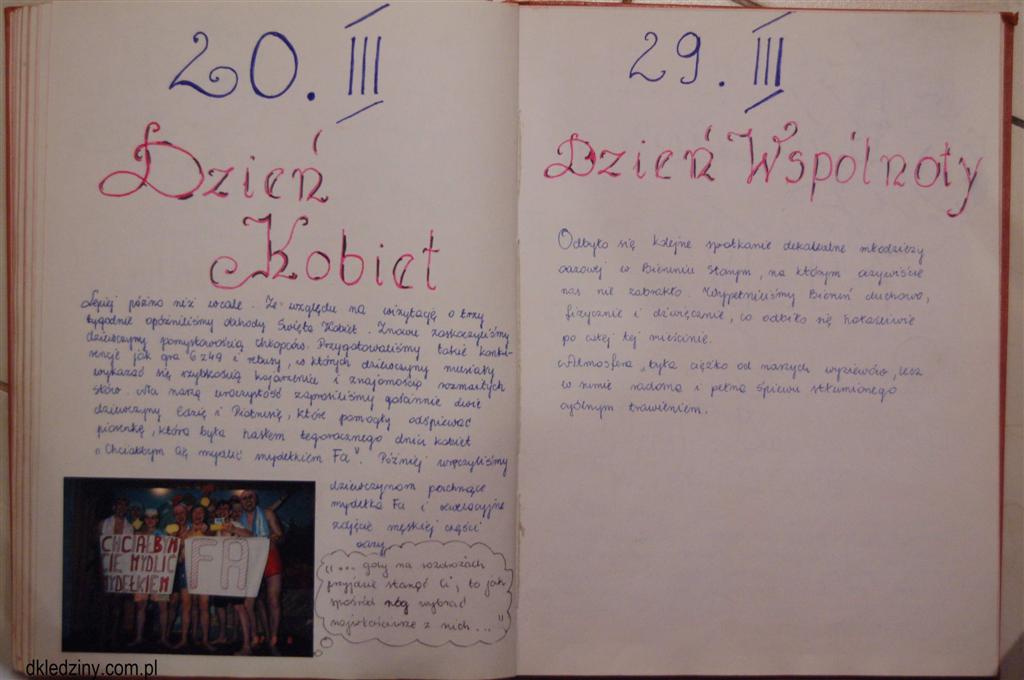 20. III
Dzień
Kobiet
Lepiej późno niż wcale. Ze względu na wizytację o trzy
tygodnie opóźniliśmy obchody Święta Kobiet. Znowu zaskoczyliśmy
dziewczyny pomysłowością chłopców. Przygotowaliśmy takie konku-
rencje jak gra 6 z 49 i rebusy, w których dziewczyny musiały
wykazać się szybkością kojarzenia i znajomością rozmaitych
słów. Na naszą uroczystość zaprosiliśmy gościnnie dwie
dziewczyny Edzię i Piotrusię, które pomogły odśpiewać
piosenkę, która była hasłem tegorocznego dnia kobiet
"Chciałbym Cię mydlić mydełkiem Fa". Później wręczyliśmy
dziewczynom pachnące
mydełka Fa i
zdjęcie męskiej części
oazy.
"... gdy na rozdrożach
przyjdzie stanąć Ci, to jak
spośród nóg wybrać
z nich ..."
CHCIAŁBYM
CIĘ MYDLIĆ
MYDEŁKIEM
FA
29. III
Dzień Wspólnoty
Odbyło się kolejne spotkanie dekanalne młodzieży
oazowej w Bieruniu Starym, na którym oczywiście
nas nie zabrakło. Wypełniliśmy Bieruń duchowo,
fizycznie i dźwięcznie, co odbiło się hałaśliwie
po całej tej mieścinie.
Atmosfera była ciężka od naszych wyziewów, lecz
w sumie radosna i pełna śpiewu stłumionego
ogólnym trawieniem.
dkledziny.com.pl